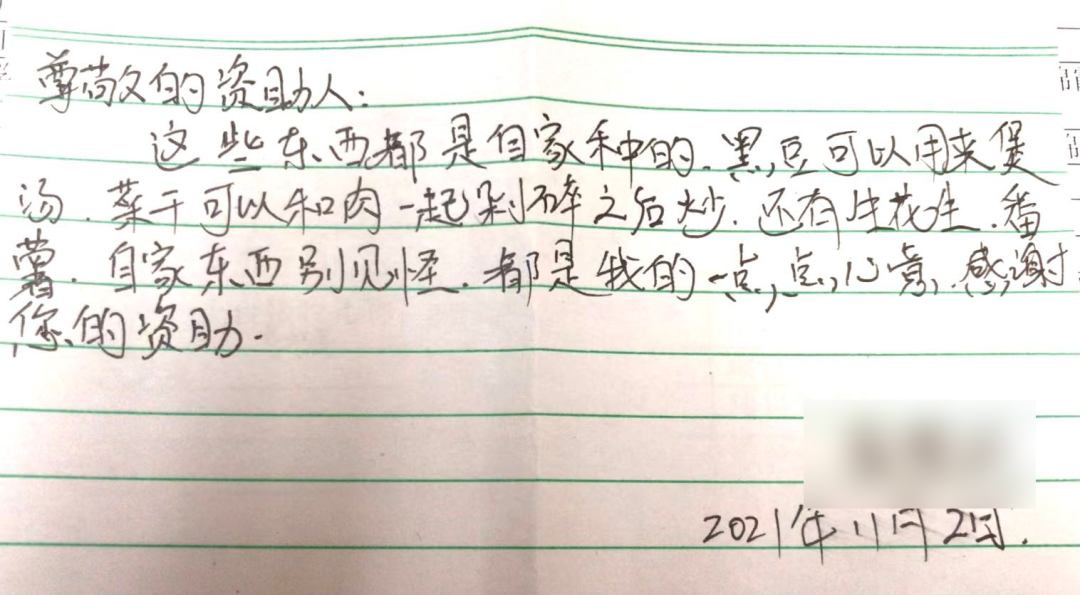 尊敬的资助人:
这些东西都是自家种的.黑豆可以用来煲
汤.菜干可以和肉一起剁碎之后炒.还有生花生.番
薯.自家东西别见怪.都是我的一点点心意,感谢
你的资助.
2021年11月2日.